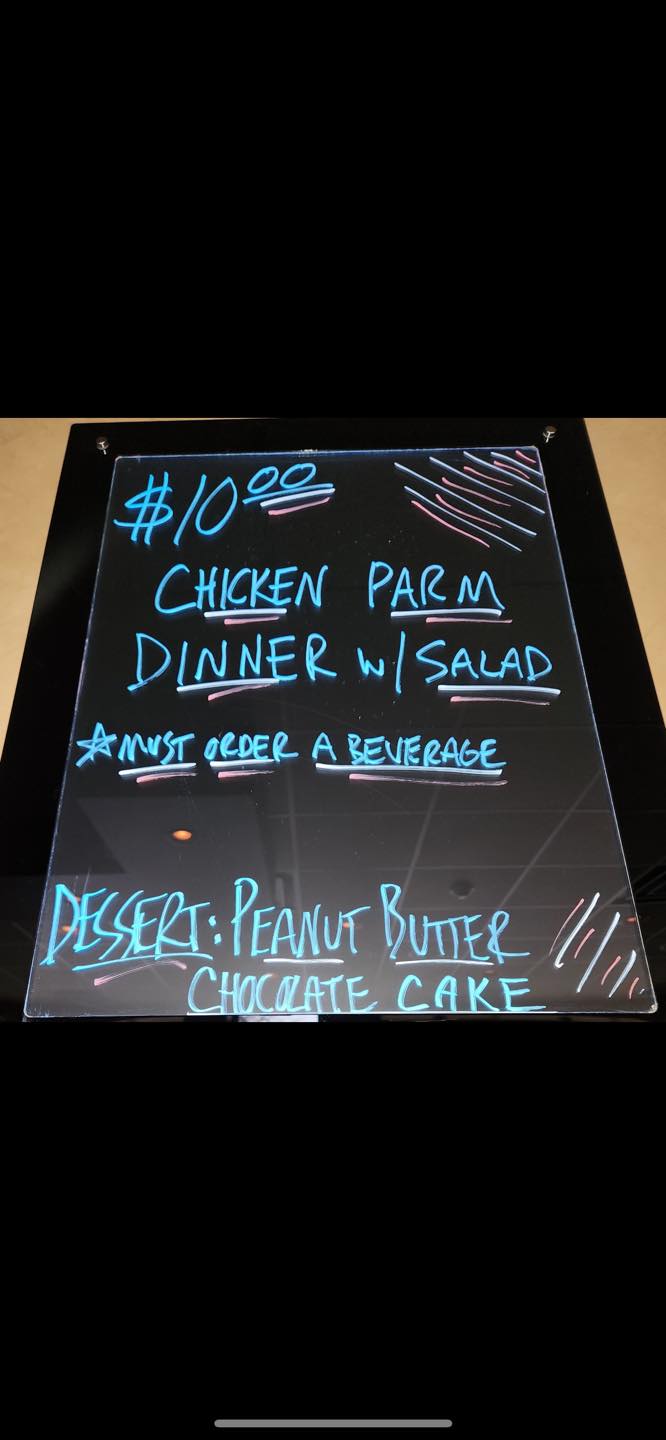 $10.00
CHICKEN PARM
DINNER W/ SALAD
☆MUST ORDER A BEVERAGE
DESSERT: PEANUT BUTTER
CHOCOLATE CAKE